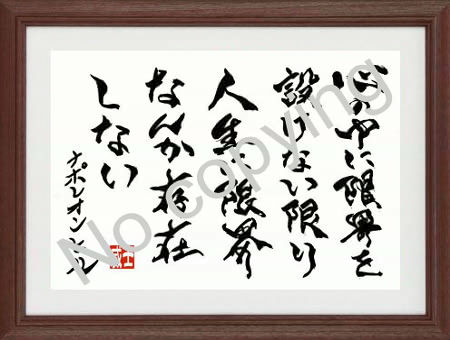 心の中に限界を
設けない限り
人生に限界
なんか存在
しない
ナポレオン・ヒル
No copying